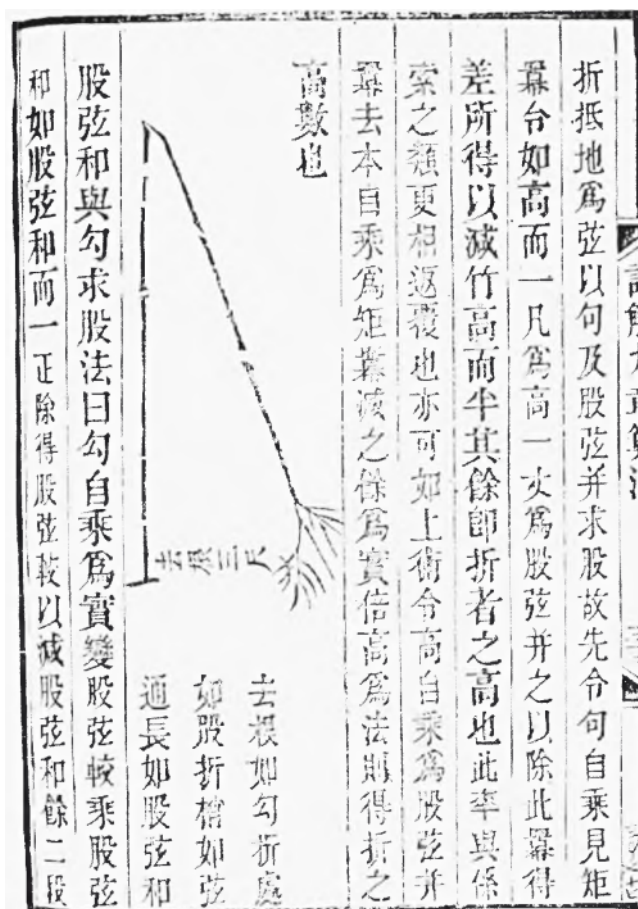 折抵地爲弦以句及股弦并求股故先令句自乘見矩
冪令如高而一凡爲高一丈爲股弦并之以除此冪得
差所得以減竹高而半其餘卽折者之高也此率與係
索之類更相返覆也亦可如上術令高自乘爲股弦并
冪去本自乘爲矩冪減之餘爲實倍高爲法則得折之
高數也
去根三尺
去根如勾折處
如股折梢如弦
通長如股弦和
股弦和與勾求股法曰勾自乘爲實變股弦較乘股弦
和如股弦和而一正除得股弦較以減股弦和餘二段